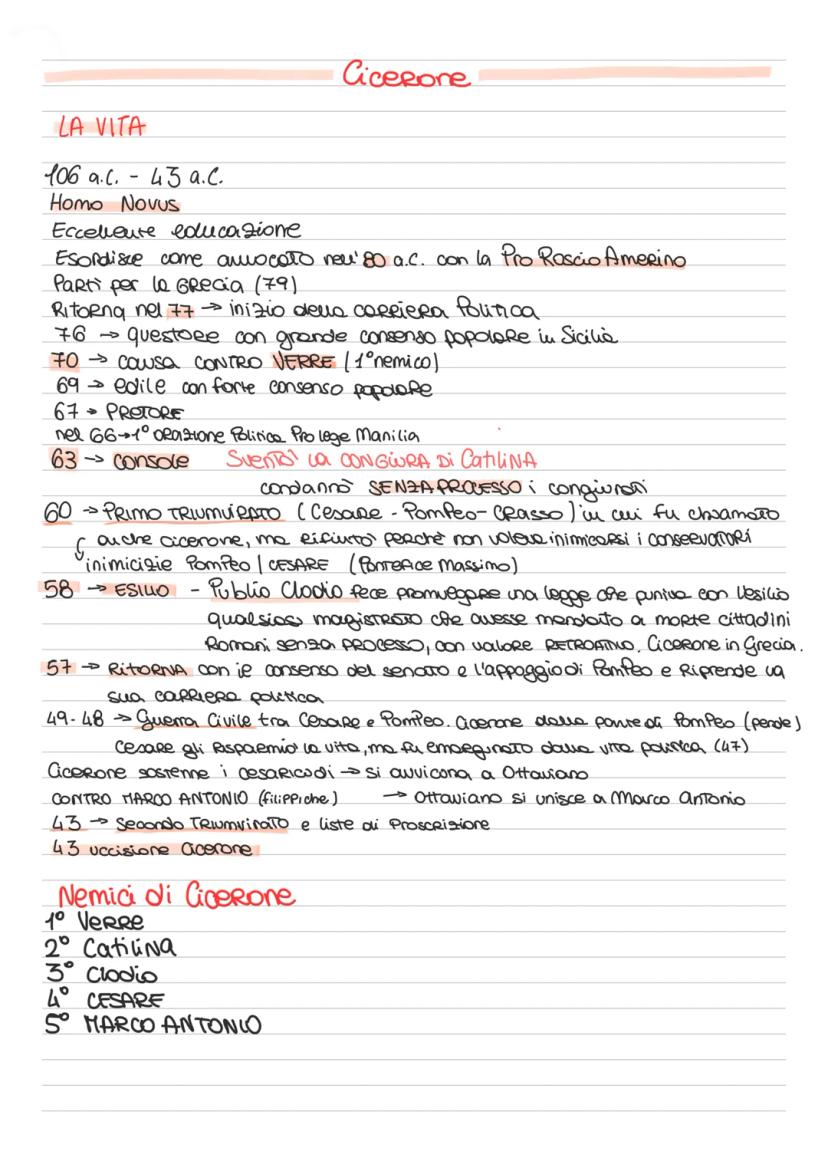 Cicerone
LA VITA
106 a.C. - 43 a.C.
Homo Novus
Eccellente educazione
Esordisce come avvocato nell'80 a.C. con la Pro Roscio Amerino
Partì per la Grecia (79)
Ritorna nel 77 → inizio della carriera Politica
76 → questore con grande consenso popolare in Sicilia
70 → causa CONTRO VERRE (1° nemico)
69 → edile con forte consenso popolare
67 → PRETORE
nel 66 → 1° orazione Politica Pro lege Manilia
63 → console Sventò la CONGIURA Di CatiliNA
condannò SENZA PROCESSO i congiurati
60 → PRIMO TRIUMVIRATO (Cesare - Pompeo - Crasso) in cui fu chiamato
anche cicerone, ma rifiutò perchè non voleva inimicarsi i conservatori
inimicizie Pompeo | CESARE (Pontefice Massimo)
58 → ESILIO - Publio Clodio fece promulgare una legge che puniva con l'esilio
qualsiasi magistrato che avesse mandato a morte cittadini
Romani senza PROCESSO, con valore RETROATTIVO. Cicerone in Grecia.
57 → RitorNA con il consenso del senato e l'appoggio di Pompeo e Riprende la
sua carriera politica
49-48 → Guerra Civile tra Cesare e Pompeo. Cicerone dalla parte di Pompeo (perde)
Cesare gli risparmiò la vita, ma fu emarginato dalla vita politica (47)
Cicerone sostenne i cesaricidi → si avvicina a Ottaviano
CONTRO MARCO ANTONIO (filippiche) → Ottaviano si unisce a Marco Antonio
43 → Secondo Triumvirato e liste di Proscrizione
43 uccisione Cicerone
Nemici di Cicerone
1° Verre
2° CatiliNA
3° Clodio
4° CESARE
5° MARCO ANTONIO